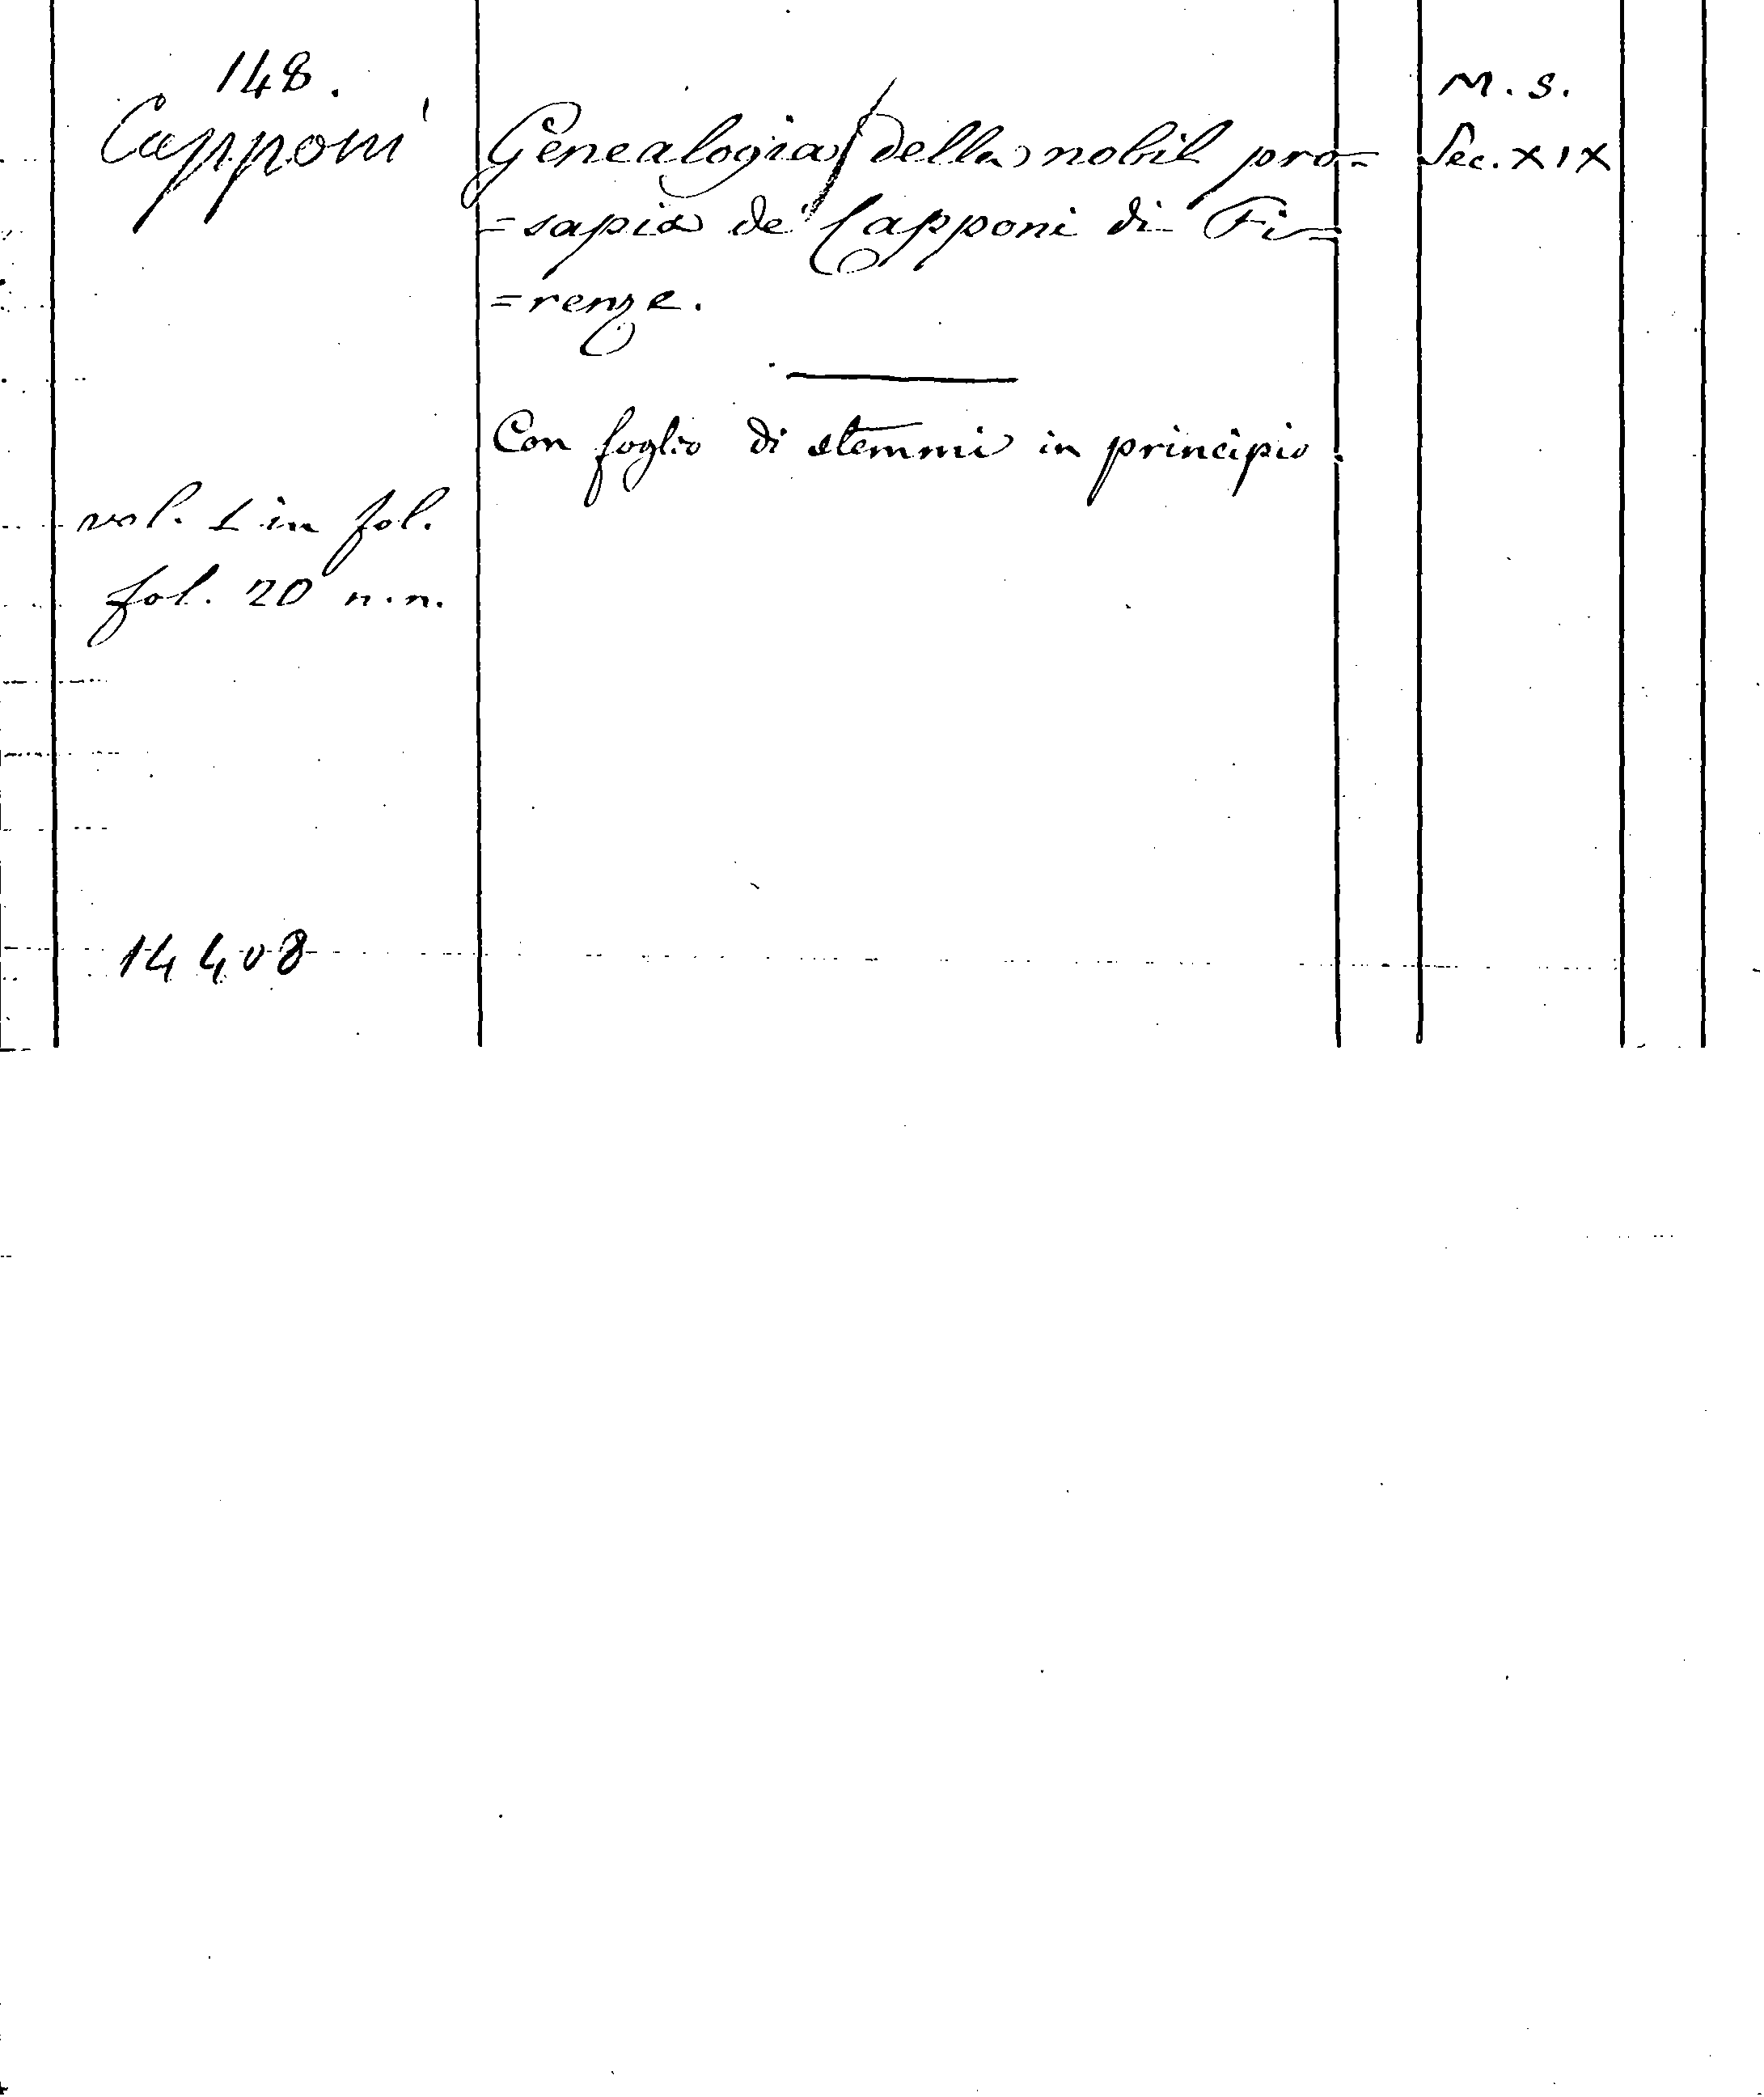 148.
Capponi
Genealogia della nobil pro=
=sapia de' Capponi di Fi=
=renze.
Con foglio di stemmi in principio.
vol. 1 in fol.
fol. 20 n.n.
14408
M.S.
Sec. XIX